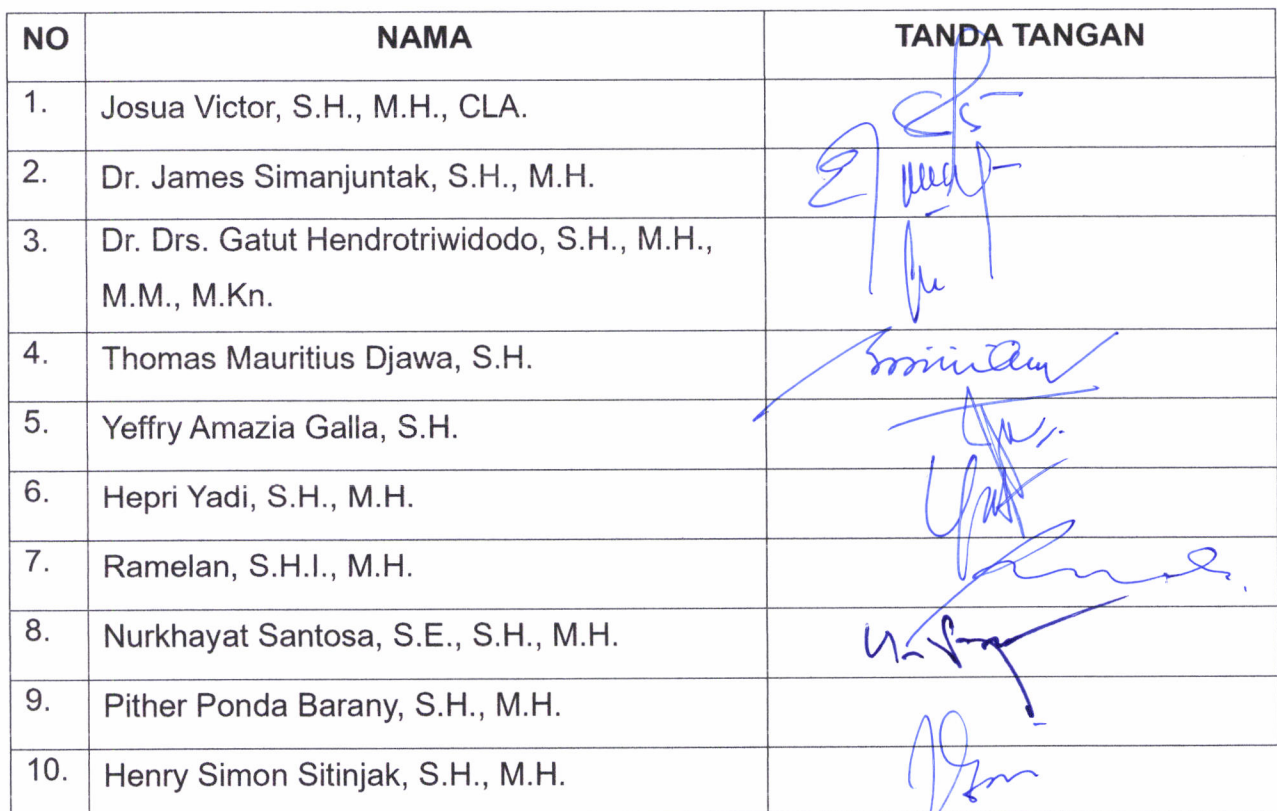 NO NAMA TANDA TANGAN
1. Josua Victor, S.H., M.H., CLA.
2. Dr. James Simanjuntak, S.H., M.H.
3. Dr. Drs. Gatut Hendrotriwidodo, S.H., M.H.,
M.M., M.Kn.
4. Thomas Mauritius Djawa, S.H.
5. Yeffry Amazia Galla, S.H.
6. Hepri Yadi, S.H., M.H.
7. Ramelan, S.H.I., M.H.
8. Nurkhayat Santosa, S.E., S.H., M.H.
9. Pither Ponda Barany, S.H., M.H.
10. Henry Simon Sitinjak, S.H., M.H.